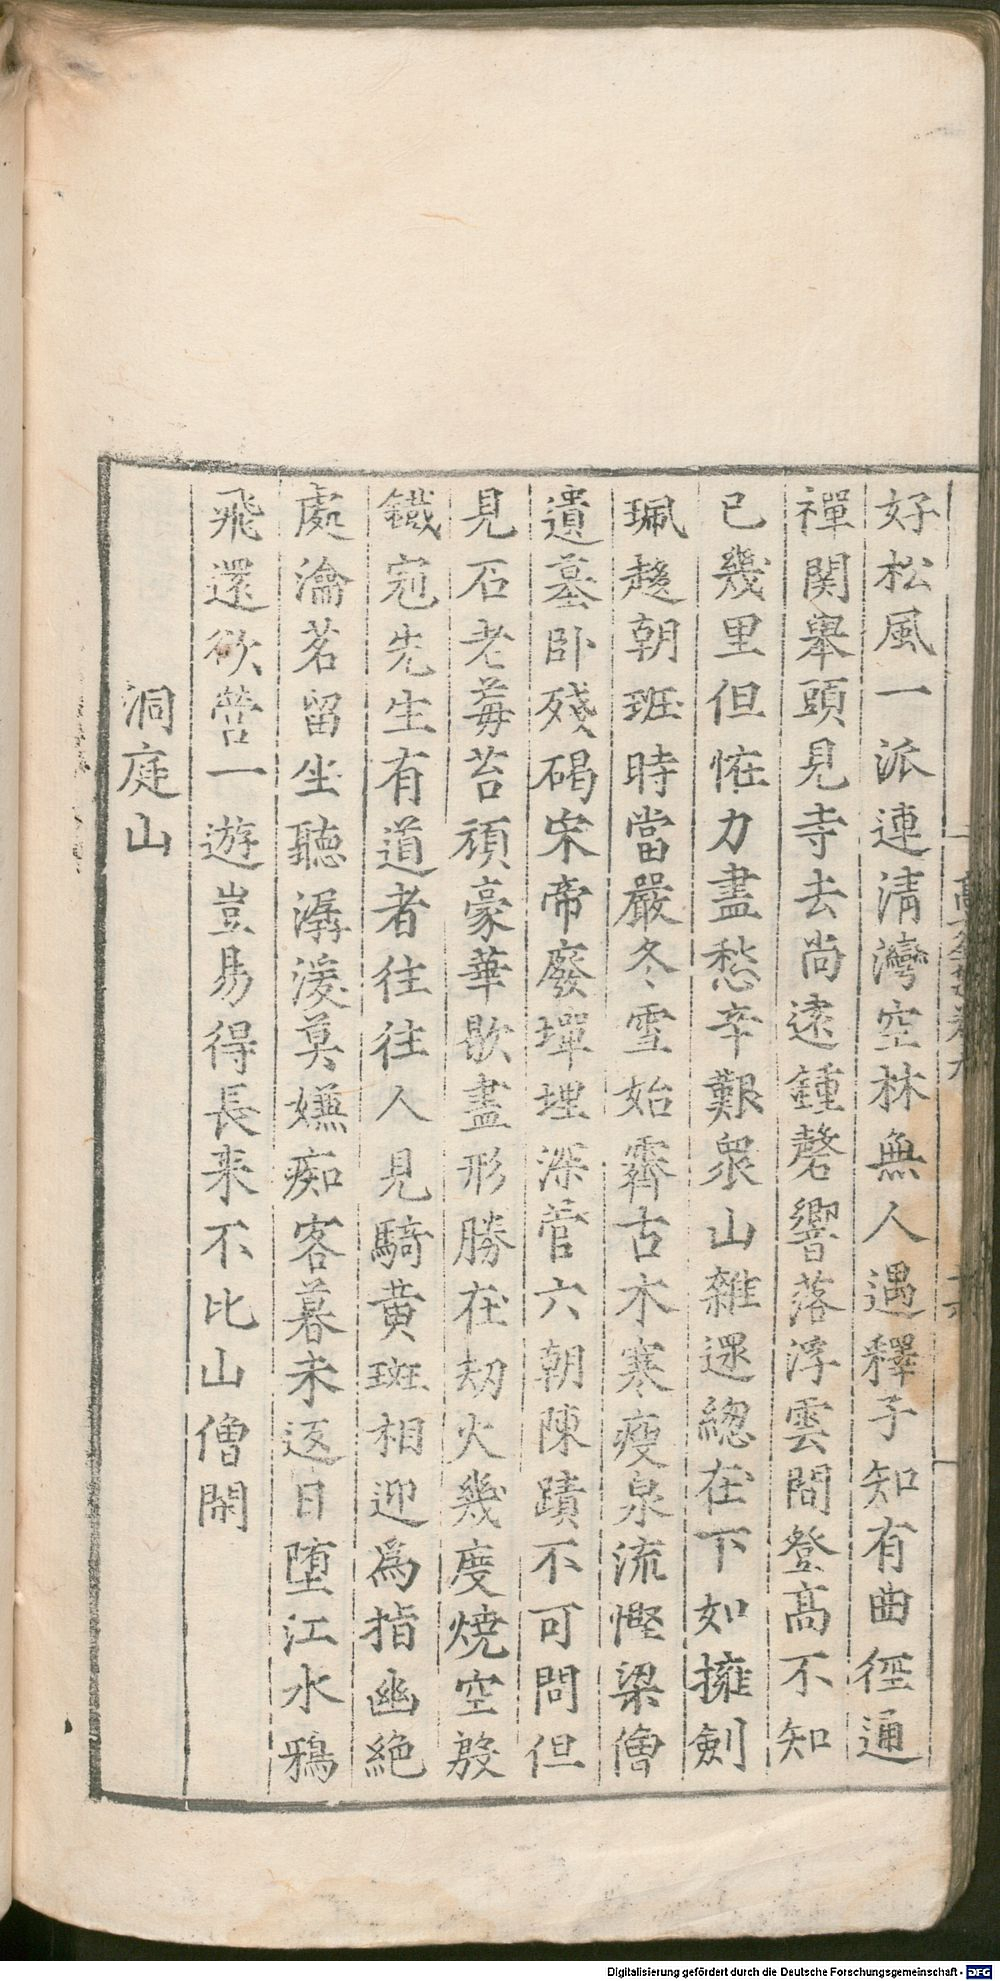 好松風一派連清灣空林無人遇釋子知有曲徑通
禪関舉頭見寺去尚遠鍾磬響落浮雲間登髙不知
已幾里但恠力盡愁辛艱衆山雜遝緫在下如擁劍
珮趍朝班時當嚴冬雪始霽古木寒瘦泉流慳梁僧
遺墓卧殘碣宋帝廢墠埋深菅六朝陳蹟不可問但
見石老莓苔頑豪華歇盡形勝在刧火幾度燒空殷
鐵宼先生有道者往往人見騎黄斑相迎爲指幽絶
處瀹茗留坐聽潺湲莫嫌痴客暮未返日墮江水鴉
飛還欲營一遊豈易得長来不比山僧閑
洞庭山
Digitalisierung gefördert durch die Deutsche Forschungsgemeinschaft - DFG